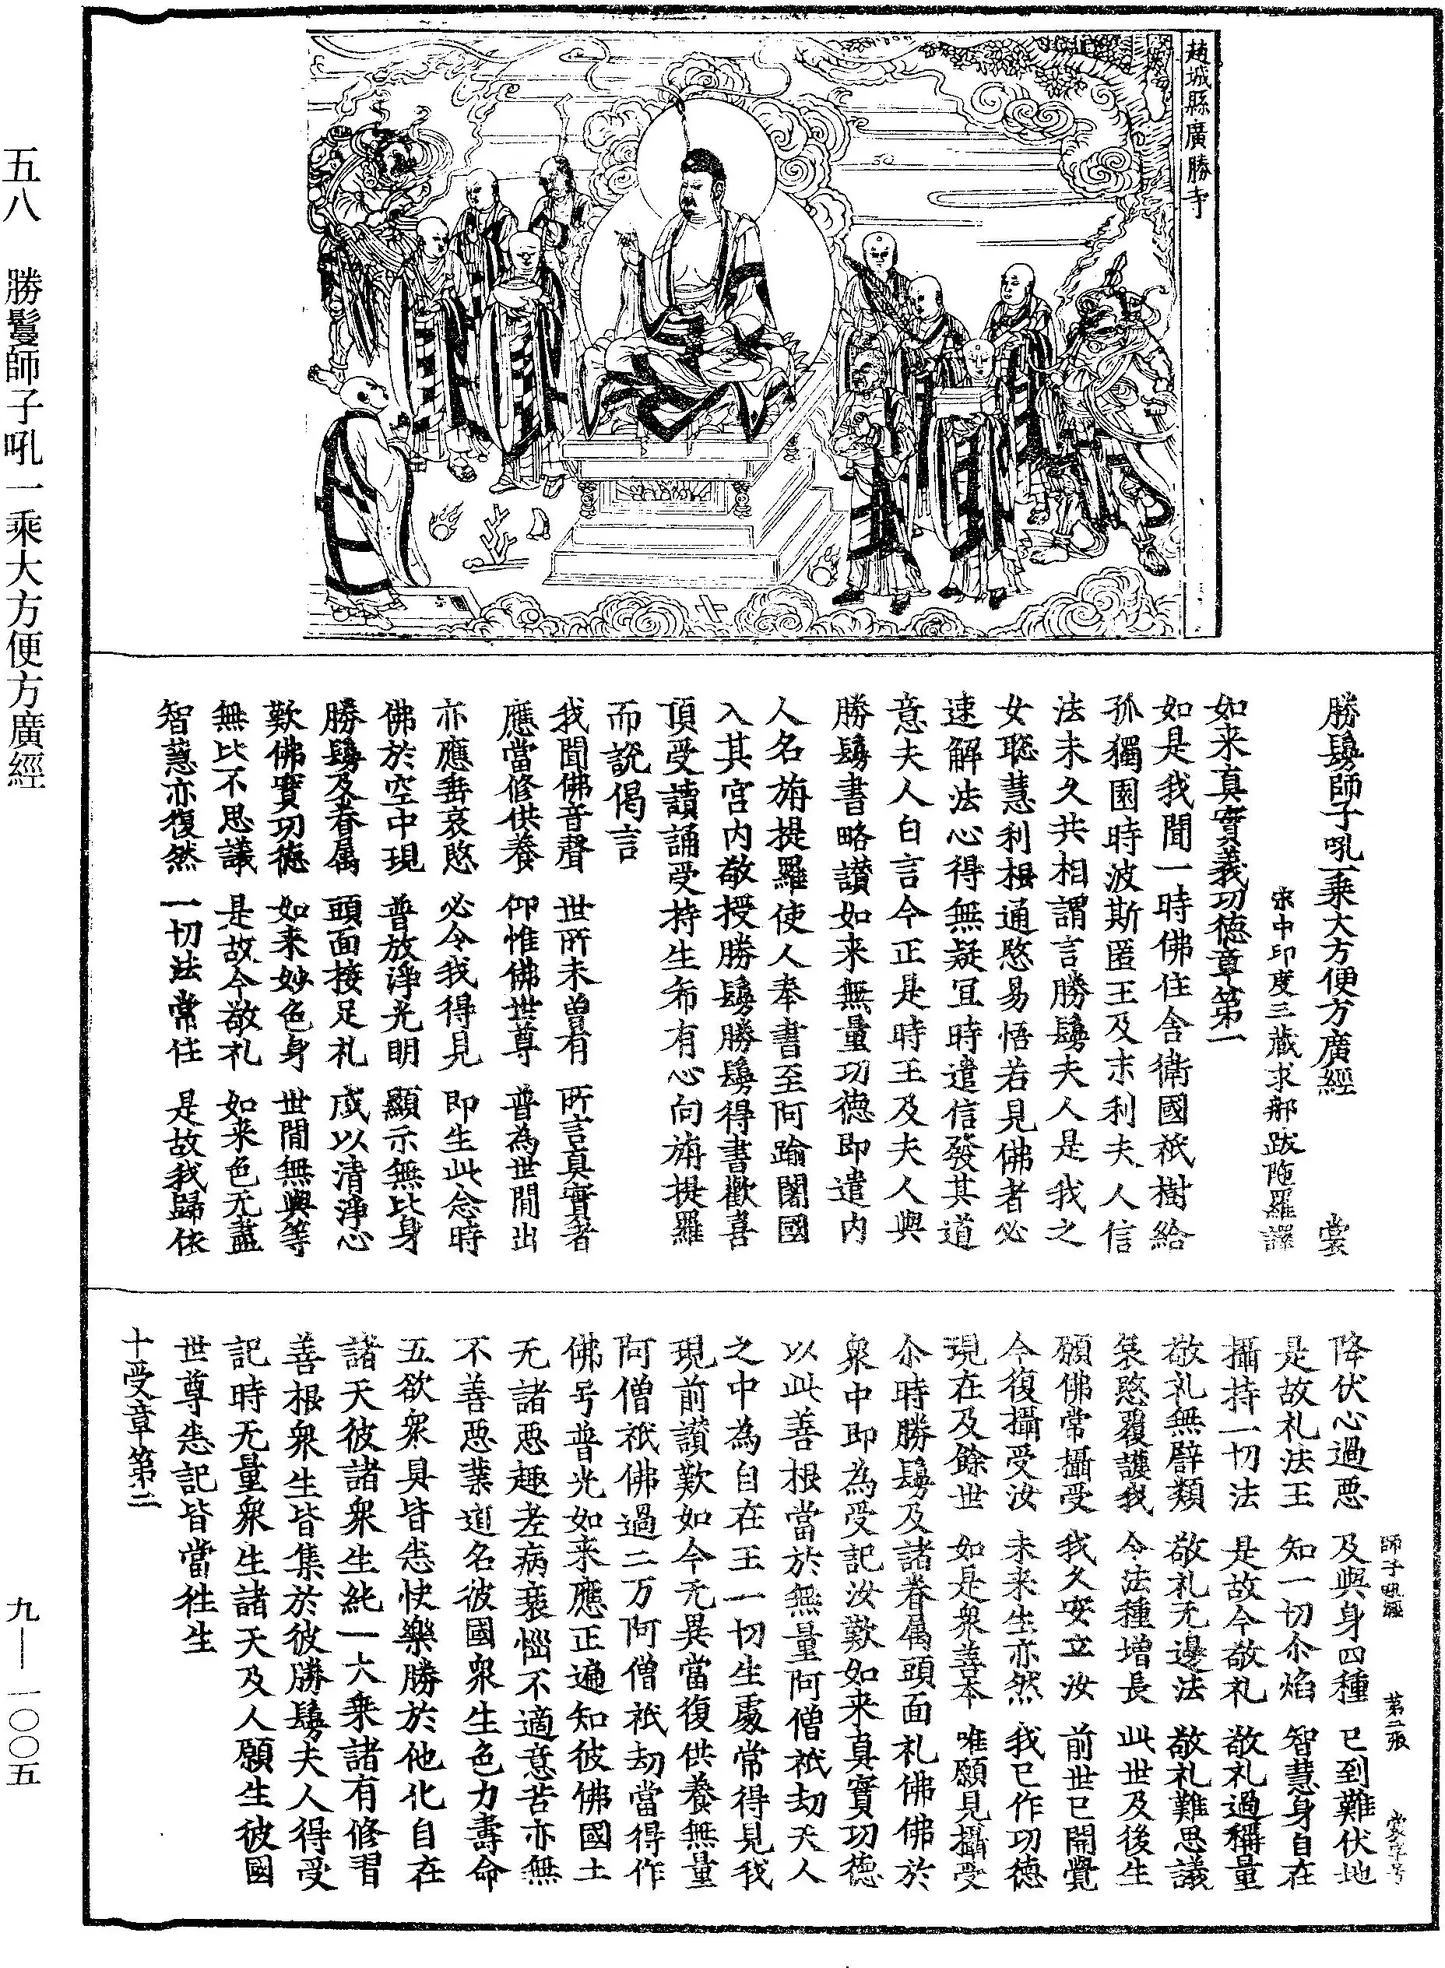 趙城縣廣勝寺
勝鬘師子吼一乘大方便方廣經 裳
宋中印度三藏求那跋陁羅譯
如来真實義功德章第一
如是我聞一時佛住舍衛國祇樹給
孤獨園時波斯匿王及末利夫人信
法未久共相謂言勝鬘夫人是我之
女聡慧利根通慜易悟若見佛者必
速解法心得無疑冝時遣信發其道
意夫人白言今正是時王及夫人與
勝鬘書略讃如来無量功德即遣内
人名旃提羅使人奉書至阿踰闍國
入其宮内敬授勝鬘勝鬘得書歡喜
頂受讀誦受持生希有心向旃提羅
而説偈言
我聞佛音聲 世所未曽有 所言真實者
應當修供養 仰惟佛世尊 普為世間出
亦應垂哀愍 必令我得見 即生此念時
佛於空中現 普放淨光明 顯示無比身
勝鬘及眷属 頭面接足礼 咸以清淨心
歎佛實功德 如来妙色身 世間無與等
無比不思議 是故今敬礼 如来色无盡
智慧亦復然 一切法常住 是故我歸依
師子吼經 第二張 裳字号
降伏心過悪 及與身四種 已到難伏地
是故礼法王 知一切尒焰 智慧身自在
攝持一切法 是故今敬礼 敬礼過稱量
敬礼無譬類 敬礼无邊法 敬礼難思議
哀愍覆護我 令法種增長 此世及後生
願佛常攝受 我久安立汝 前世已開覺
今復攝受汝 未来生亦然 我已作功德
現在及餘世 如是衆善本 唯願見攝受
尒時勝鬘及諸眷属頭面礼佛佛於
衆中即為受記汝歎如来真實功德
以此善根當於無量阿僧祇劫天人
之中為自在王一切生處常得見我
現前讃歎如今无異當復供養無量
阿僧祇佛過二万阿僧祇劫當得作
佛号普光如来應正遍知彼佛國土
无諸悪趣老病衰惱不適意苦亦無
不善悪業道名彼國衆生色力壽命
五欲衆具皆悉快樂勝於他化自在
諸天彼諸衆生純一大乗諸有修習
善根衆生皆集於彼勝鬘夫人得受
記時无量衆生諸天及人願生彼國
世尊悉記皆當徃生
十受章第二
五八 勝鬘師子吼一乘大方便方廣經
九—一〇〇五